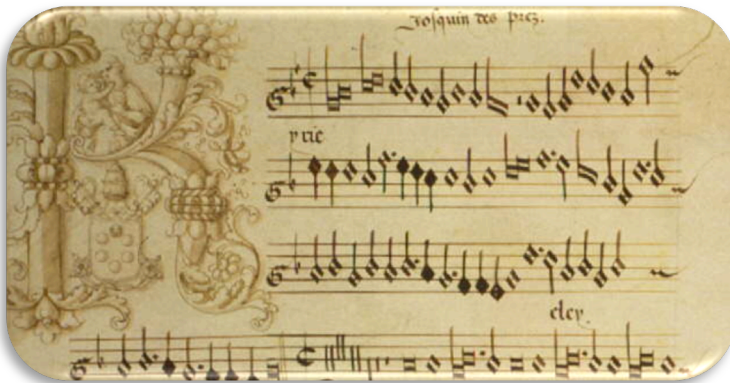 Josquin des prez.
yrie
eley